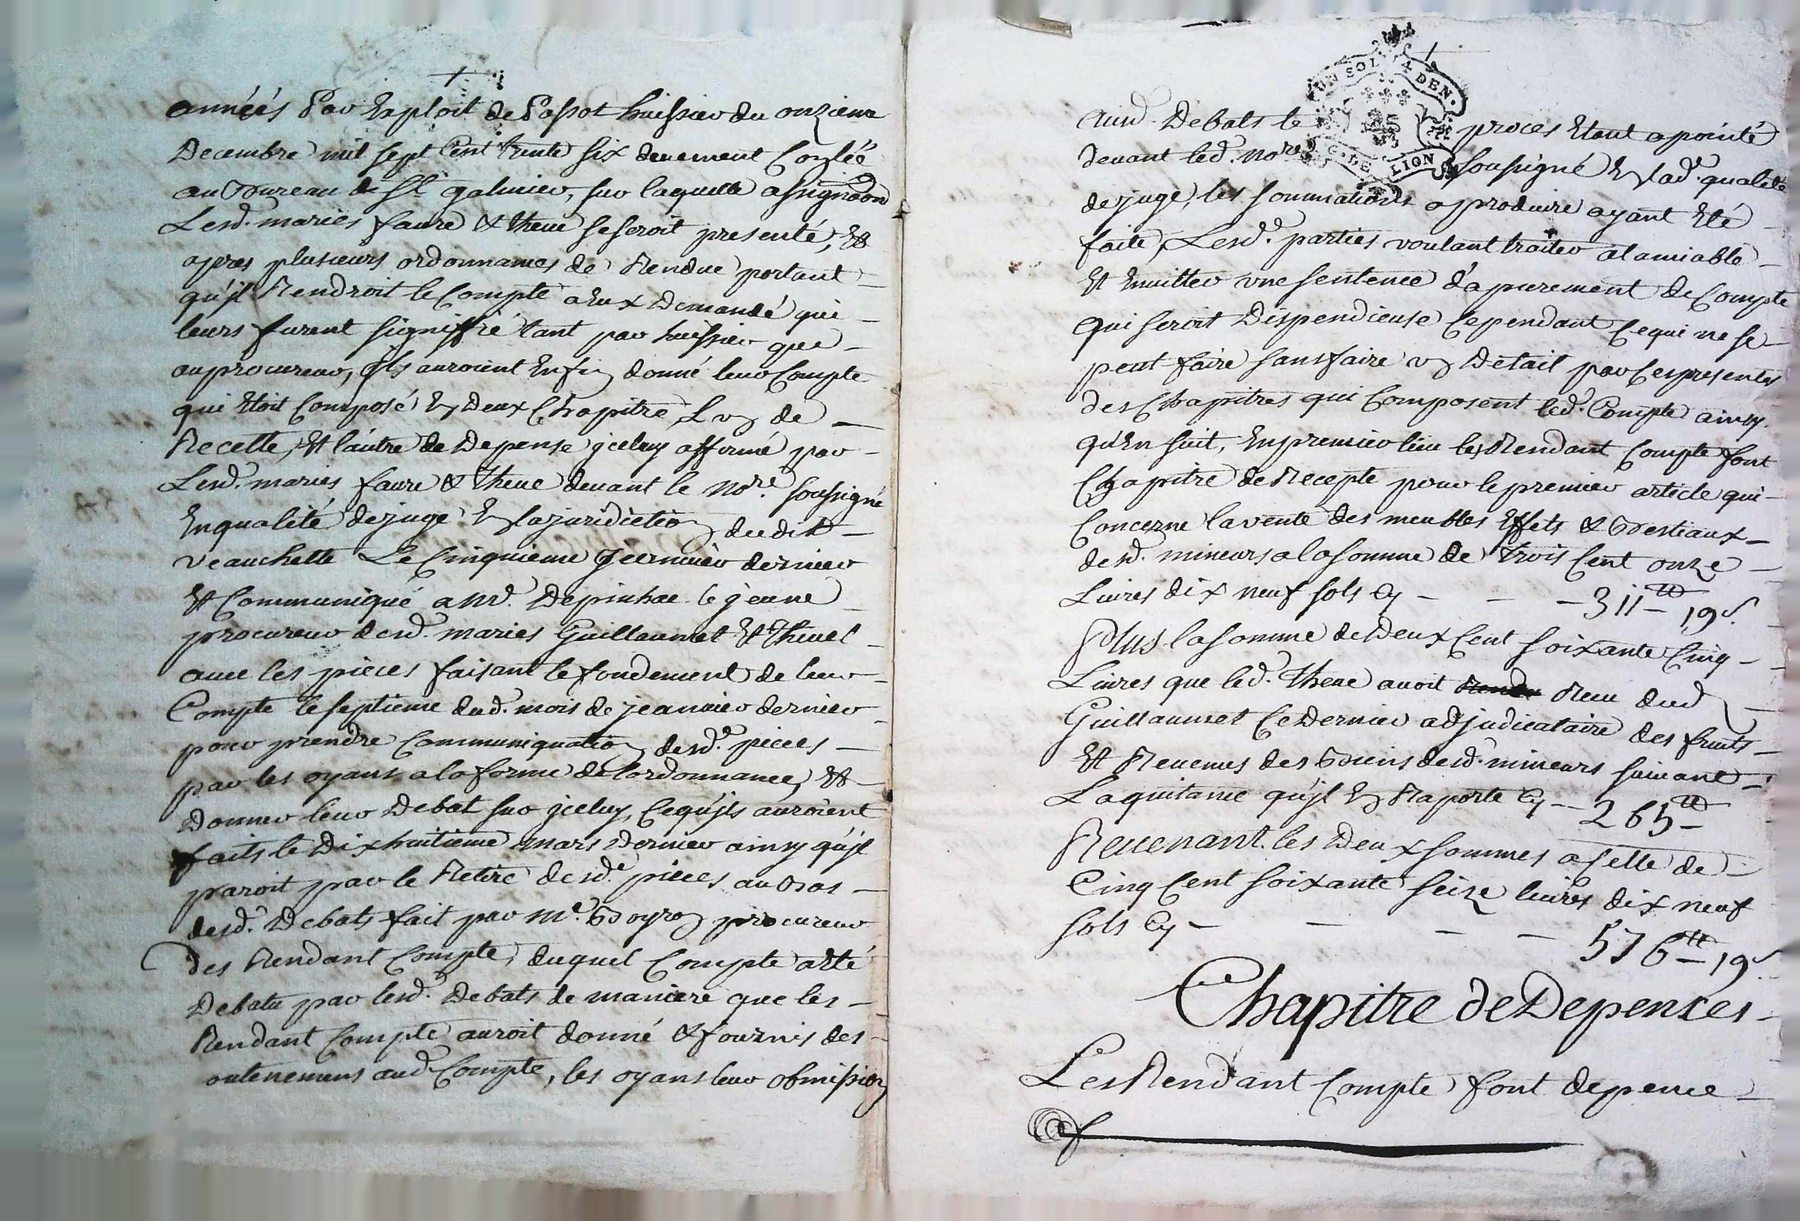 années par Exploit de passot huissier du onzieme
Decembre mil sept Cent trente six deuement Conlée
au Boureau de St. galmier, sur laquelle assignaon
Lesd. mariés faure & theue se seroit presenté, Et
apres plusieurs ordonnances de Rendue portant
qu'jl Rendroit le Compte a Eux Demandé qui
leurs furent signiffié tant par huissier que
au procureur, jls auroient Enfin donné leur Compte
qui Etoit Composé En Deux Chapitre, Lun de
Recette, Et l'autre de Depense jceluy affirmé par
Lesd. mariés faure & theue deuant le nore. soussigné
En qualité de juge En la juridiction dudit
Veauchette Le Cinquieme Jeanuier dernier
Et Communiqué a Me. Depinhac le jeune
procureur desd. mariés Guillaumat Et theuet
auec les pieces faisant le fondement de leur
Compte le septieme dud. mois de jeanuier dernier
pour prendre Communiquation desd. pieces
par les oyans a la forme de l'ordonnance, Et
Donner leur Debat sur jceluy, Cequ'jls auroient
faits le Dix huitieme mars Dernier ainsy qu'jl
paroit par le Retiré desd. pieces au Bas
desd. Debats fait par Me. Boyron procureur
des Rendant Compte, duquel Compte a eté
Debatu par lesd. Debats de maniere que les
Rendant Compte auroit donné & fournis des
outenemens aud. Compte, les oyans leur obmission
UN SOL 4 DEN.
G. DE LION
auxd. Debats le proces Etant apointé
deuant led. nore. soussigné En lad. qualité
de juge, les sommations a produire ayant Eté
faite, Lesd. parties voulant traiter a lamiable
Et Euitter vne sentence d'apurement de Compte
qui seroit Dispendieuse Cependant Cequi ne se
peut faire sans faire vn Detail par Ces presentes
des Chapitres qui Composent led. Compte ainsy
qu'En suit, En premier lieu les Rendant Compte font
Chapitre de Recepte pour le premier article qui
Concerne la vente des meubles Effets & Bestiaux
desd. mineurs a la somme de trois Cent onze
Liures dix neuf sols Cy - - - 311tt 19s
Plus la somme de Deux Cent soixante Cinq
Liures que led. theue auoit Receu dud
Guillaumat Ce Dernier adjudicataire des fruits
Et Reuenus des Biens desd. mineurs suiuant
Laquitance qu'jl En Raporte Cy - 265tt
Reuenant les Deux sommes a Celle de
Cinq Cent soixante seize liures dix neuf
sols Cy - - - - 576tt 19s
Chapitre de Depences
Les Rendant Compte font depence